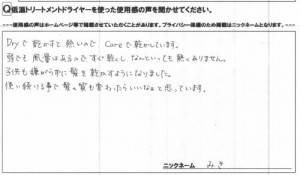 Q低温トリートメントドライヤーを使った使用感の声を聞かせてください。
使用感の声はホームページ等で掲載させていただくことがあります。プライバシー保護のため掲載はニックネームとなります。
Dryで乾かすと熱いので Careで乾かしています。
弱でも風量はあるのですぐ乾くし なんといっても熱くありません。
子供も嫌がらずに髪を乾かすようになりました。
使い続ける事で髪の質も変わったらいいなぁと思っています。
ニックネーム みき